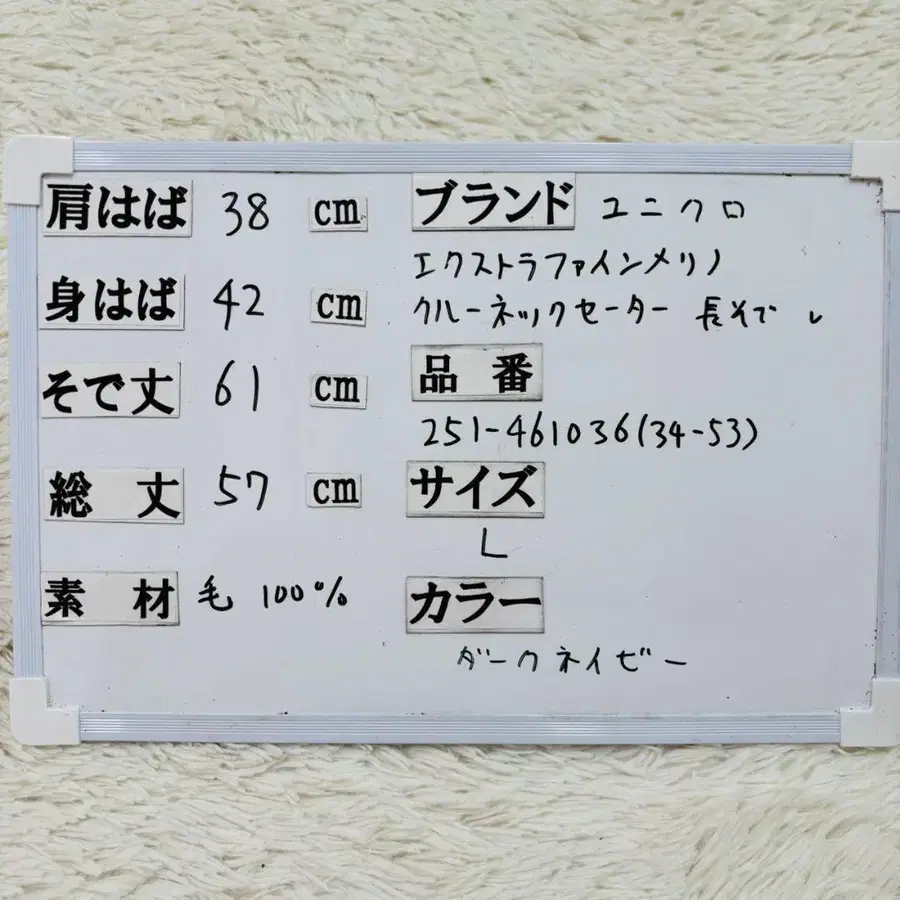 肩はば 38 cm
身はば 42 cm
そで丈 61 cm
総丈 57 cm
素材 毛 100%
ブランド ユニクロ
エクストラファインメリノ
クルーネックセーター 長そで
品番
251-461036(34-53)
サイズ
L
カラー
ダークネイビー